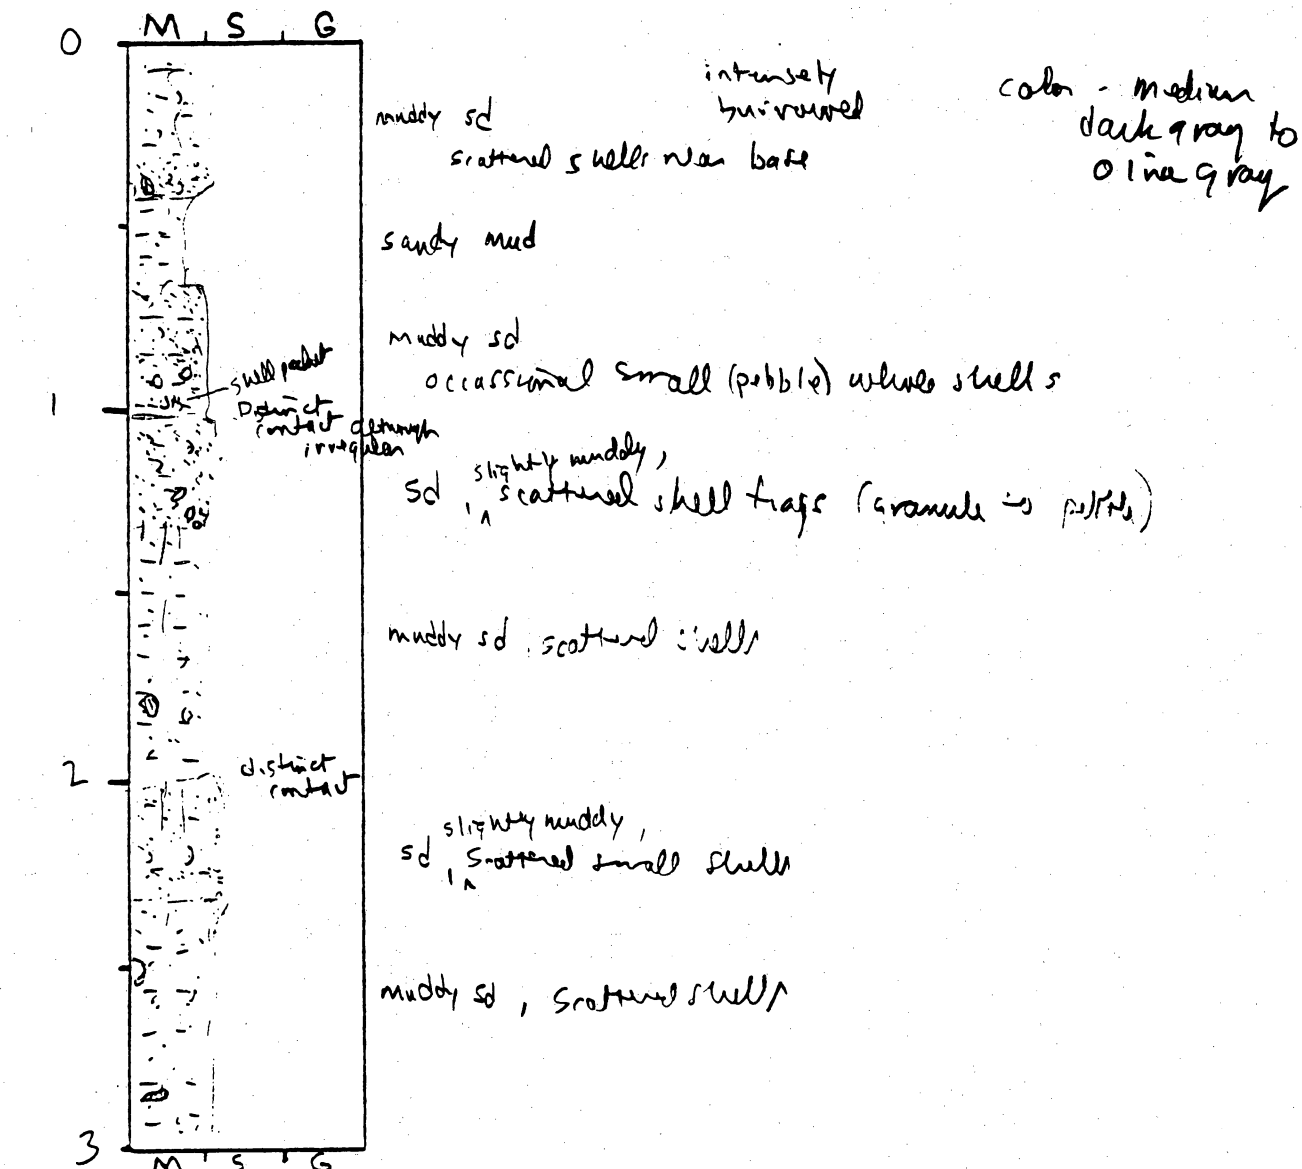 M S G
0
intensely
burrowed
color - medium
dark gray to
olive gray
muddy sd
scattered shells near base
sandy mud
muddy sd
occassional small (pebble) whole shells
shell pocket
1
Distinct
contact although
irregular
slightly muddy,
sd , ^ scattered shell frags (granule to pebble)
muddy sd , scattered shells
2
distinct
contact
slightly muddy,
sd , ^ scattered small shells
muddy sd , scattered shells
3
M S G